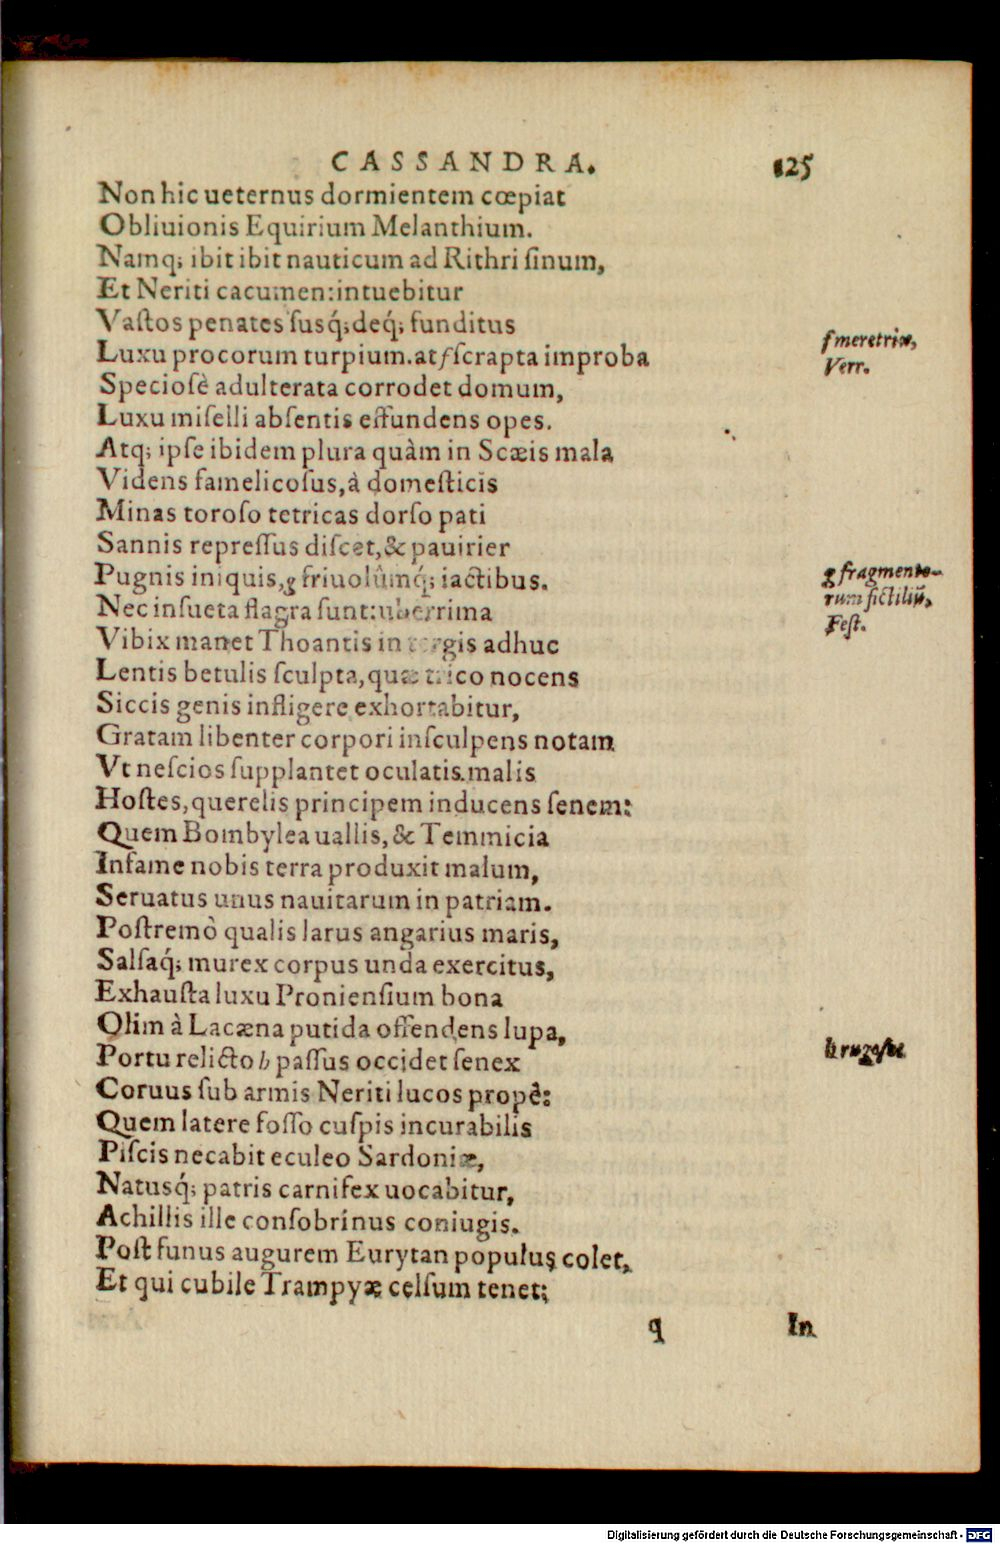 CASSANDRA. 125
Non hic ueternus dormientem cœpiat
Obliuionis Equirium Melanthium.
Namq; ibit ibit nauticum ad Rithri ſinum,
Et Neriti cacumen: intuebitur
Vaſtos penates ſusq́;deq́; funditus
Luxu procorum turpium. at f ſcrapta improba
f meretrix,
Verr.
Specioſè adulterata corrodet domum,
Luxu miſelli abſentis effundens opes.
Atq; ipſe ibidem plura quàm in Scæis mala
Videns famelicoſus, à domeſticis
Minas toroſo tetricas dorſo pati
Sannis repreſſus diſcet, & pauirier
Pugnis iniquis, g friuolûmq́; iactibus.
g fragmento-
rum fictiliũ,
Feſt.
Nec inſueta flagra ſunt: uberrima
Vibix manet Thoantis in tergis adhuc
Lentis betulis ſculpta, quæ nocens
Siccis genis infligere exhortabitur,
Gratam libenter corpori inſculpens notam
Vt neſcios ſupplantet oculatis malis
Hoſtes, querelis principem inducens ſenem:
Quem Bombylea uallis, & Temmicia
Infame nobis terra produxit malum,
Seruatus unus nauitarum in patriam.
Poſtremò qualis larus angarius maris,
Salſaq́; murex corpus unda exercitus,
Exhauſta luxu Pronienſium bona
Olim à Lacæna putida offendens lupa,
Portu relicto h paſſus occidet ſenex
Coruus ſub armis Neriti lucos propè:
Quem latere foſſo cuſpis incurabilis
Piſcis necabit eculeo Sardoniæ,
Natusq́; patris carnifex uocabitur,
Achillis ille conſobrinus coniugis.
Poſt funus augurem Eurytan populus colet,
Et qui cubile Trampyæ celſum tenet;
q In
Digitalisierung gefördert durch die Deutsche Forschungsgemeinschaft - DFG